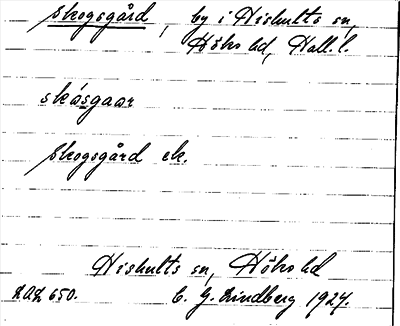 Skogsgård, by i Hishults sn,
Höks hd, Hall. l.
skósgaar
Skogsgård ek.
Hishults sn, Höks hd
LAL 650. C. G. Lindberg 1924.